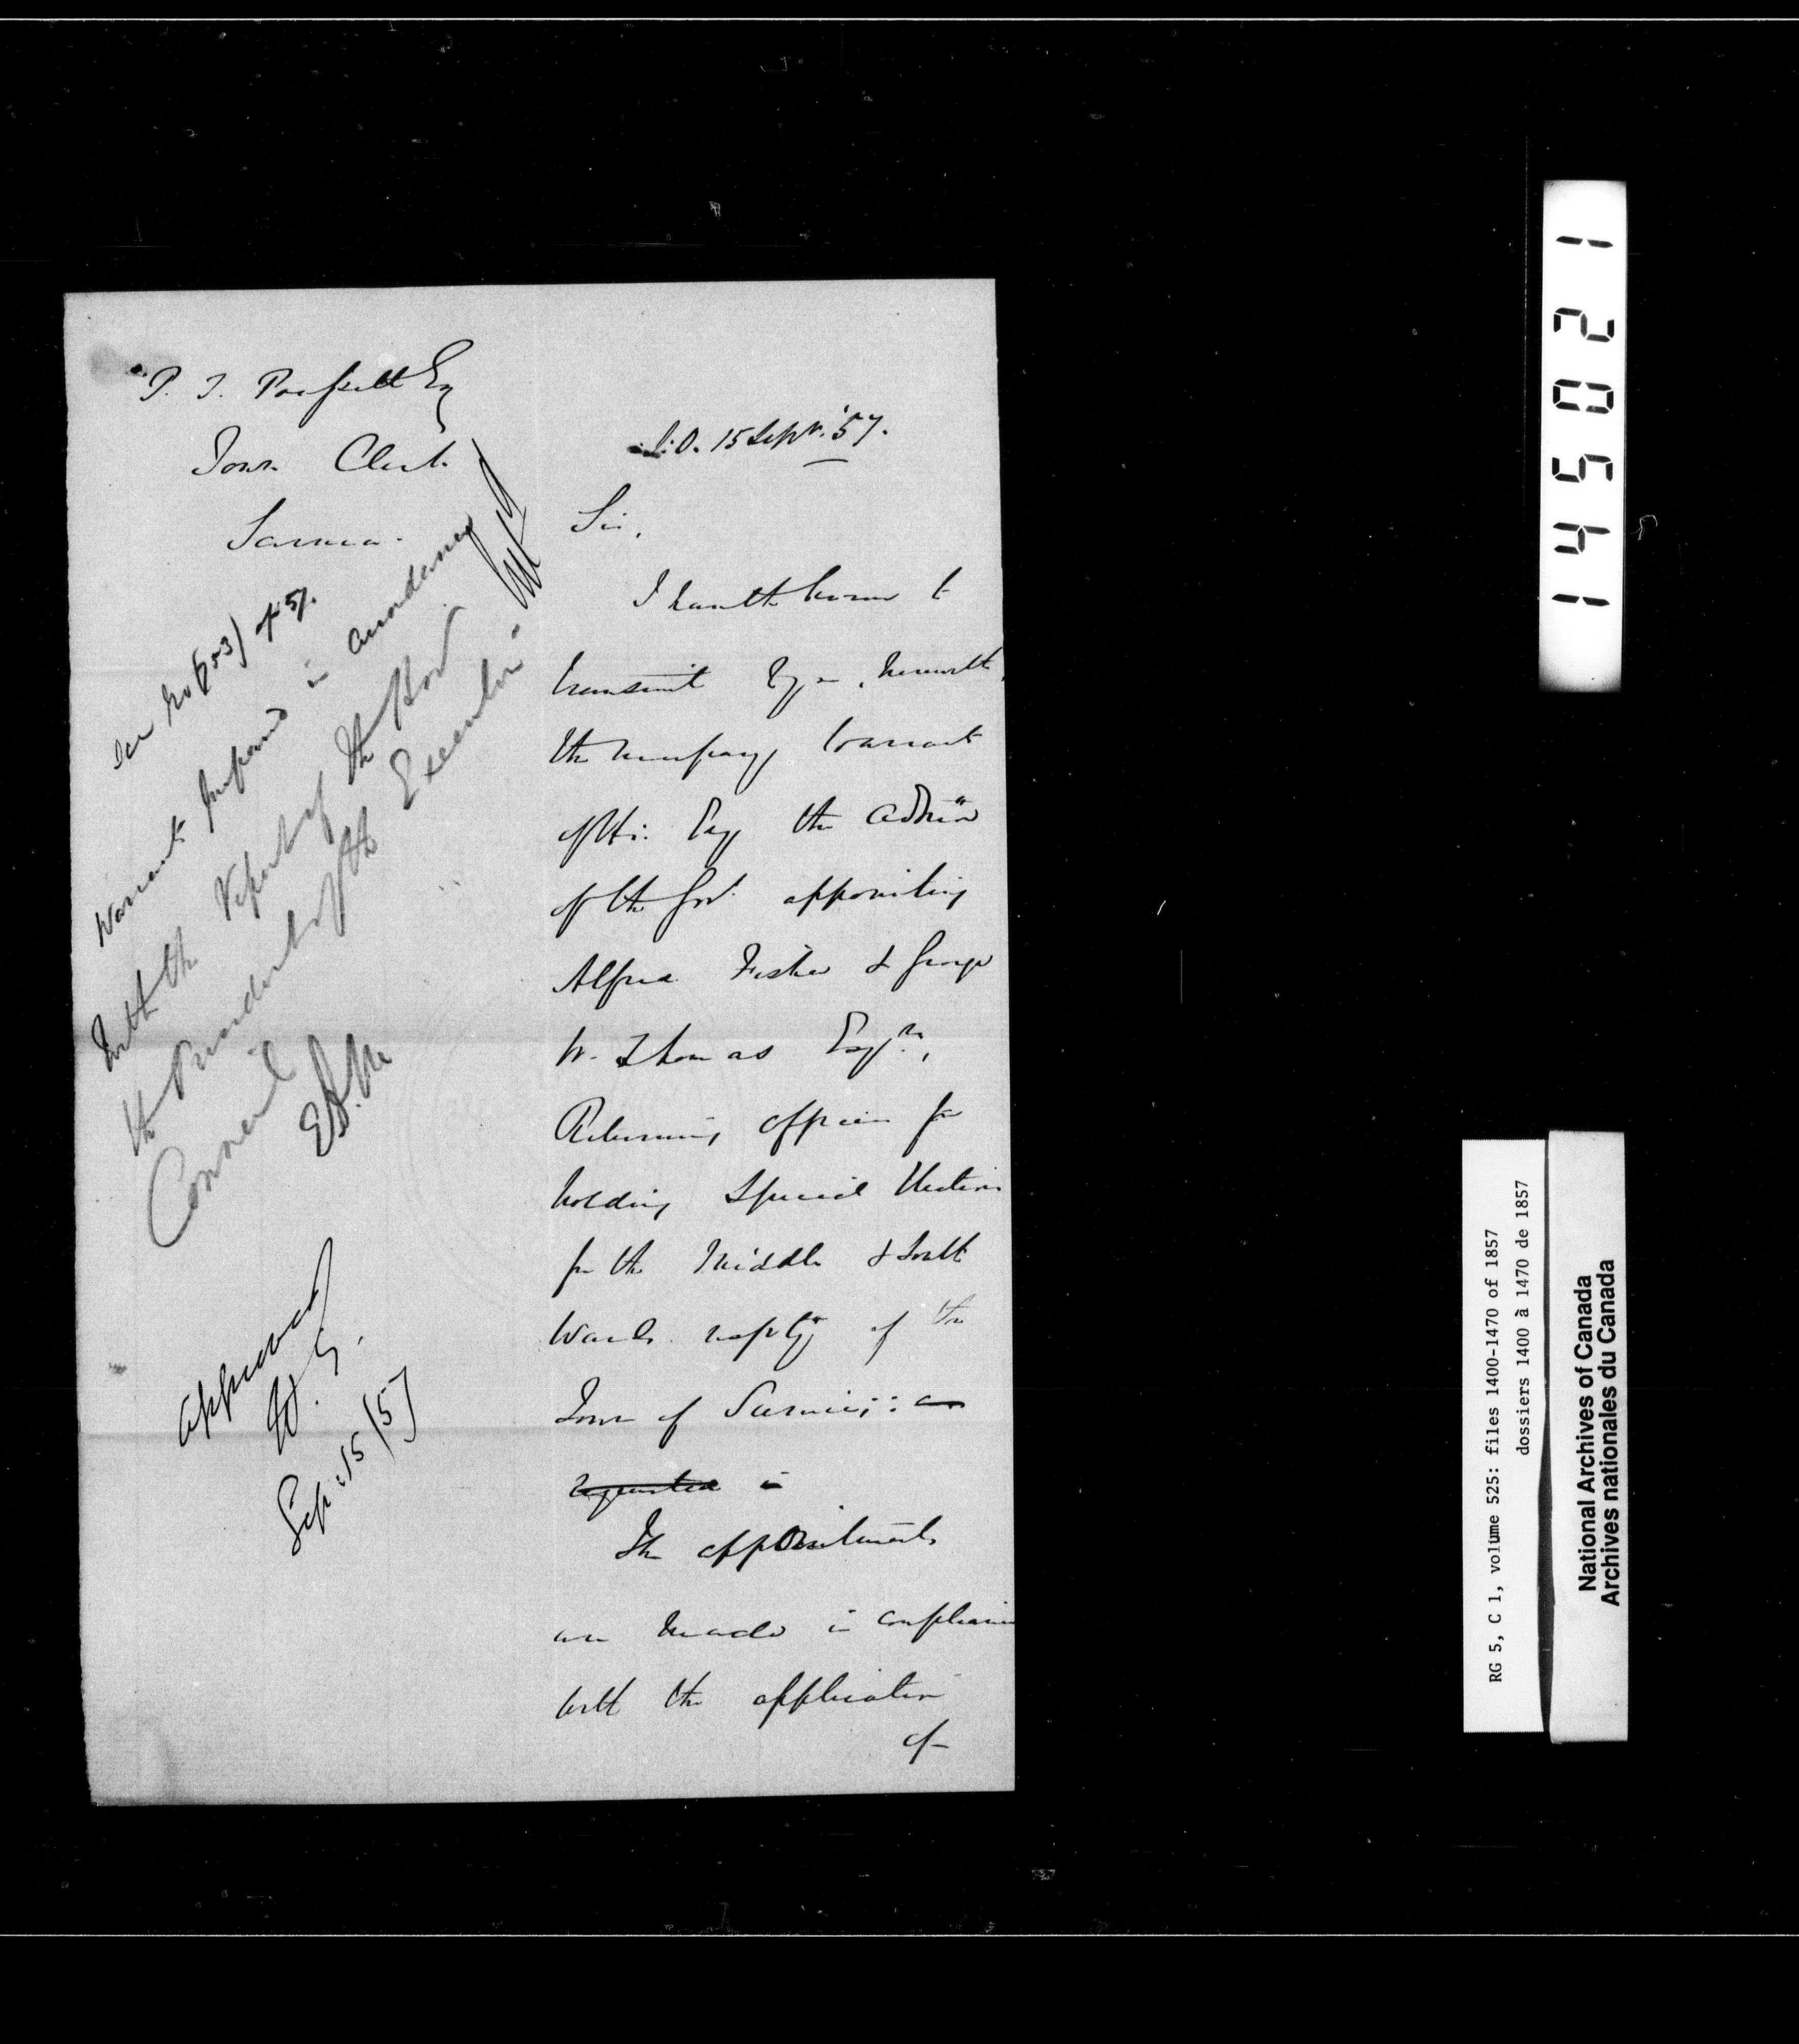 P. T. Poussett Esq
Town Clerk
Sarnia.
S.O. 15 Sept. '57.
Sir,
I have the honor to
transmit to you, herewith,
the necessary Warrant
of His Excy the Admin
of the Govt appointing
Alfred Fisher & George
W. Thomas Esqrs,
Returning Officers for
holding Special Elections
for the Middle & South
Wards respty of the
Town of Sarnia: as
requested in
The appointments
are made in compliance
with the application
of
of 57.
Warrants prepared in accordance
with the report of the Hon
the President of the Executive
Council
approved
Sep: 15/57
145021
RG 5, C 1, volume 525: files 1400-1470 of 1857
dossiers 1400 à 1470 de 1857
National Archives of Canada
Archives nationales du Canada